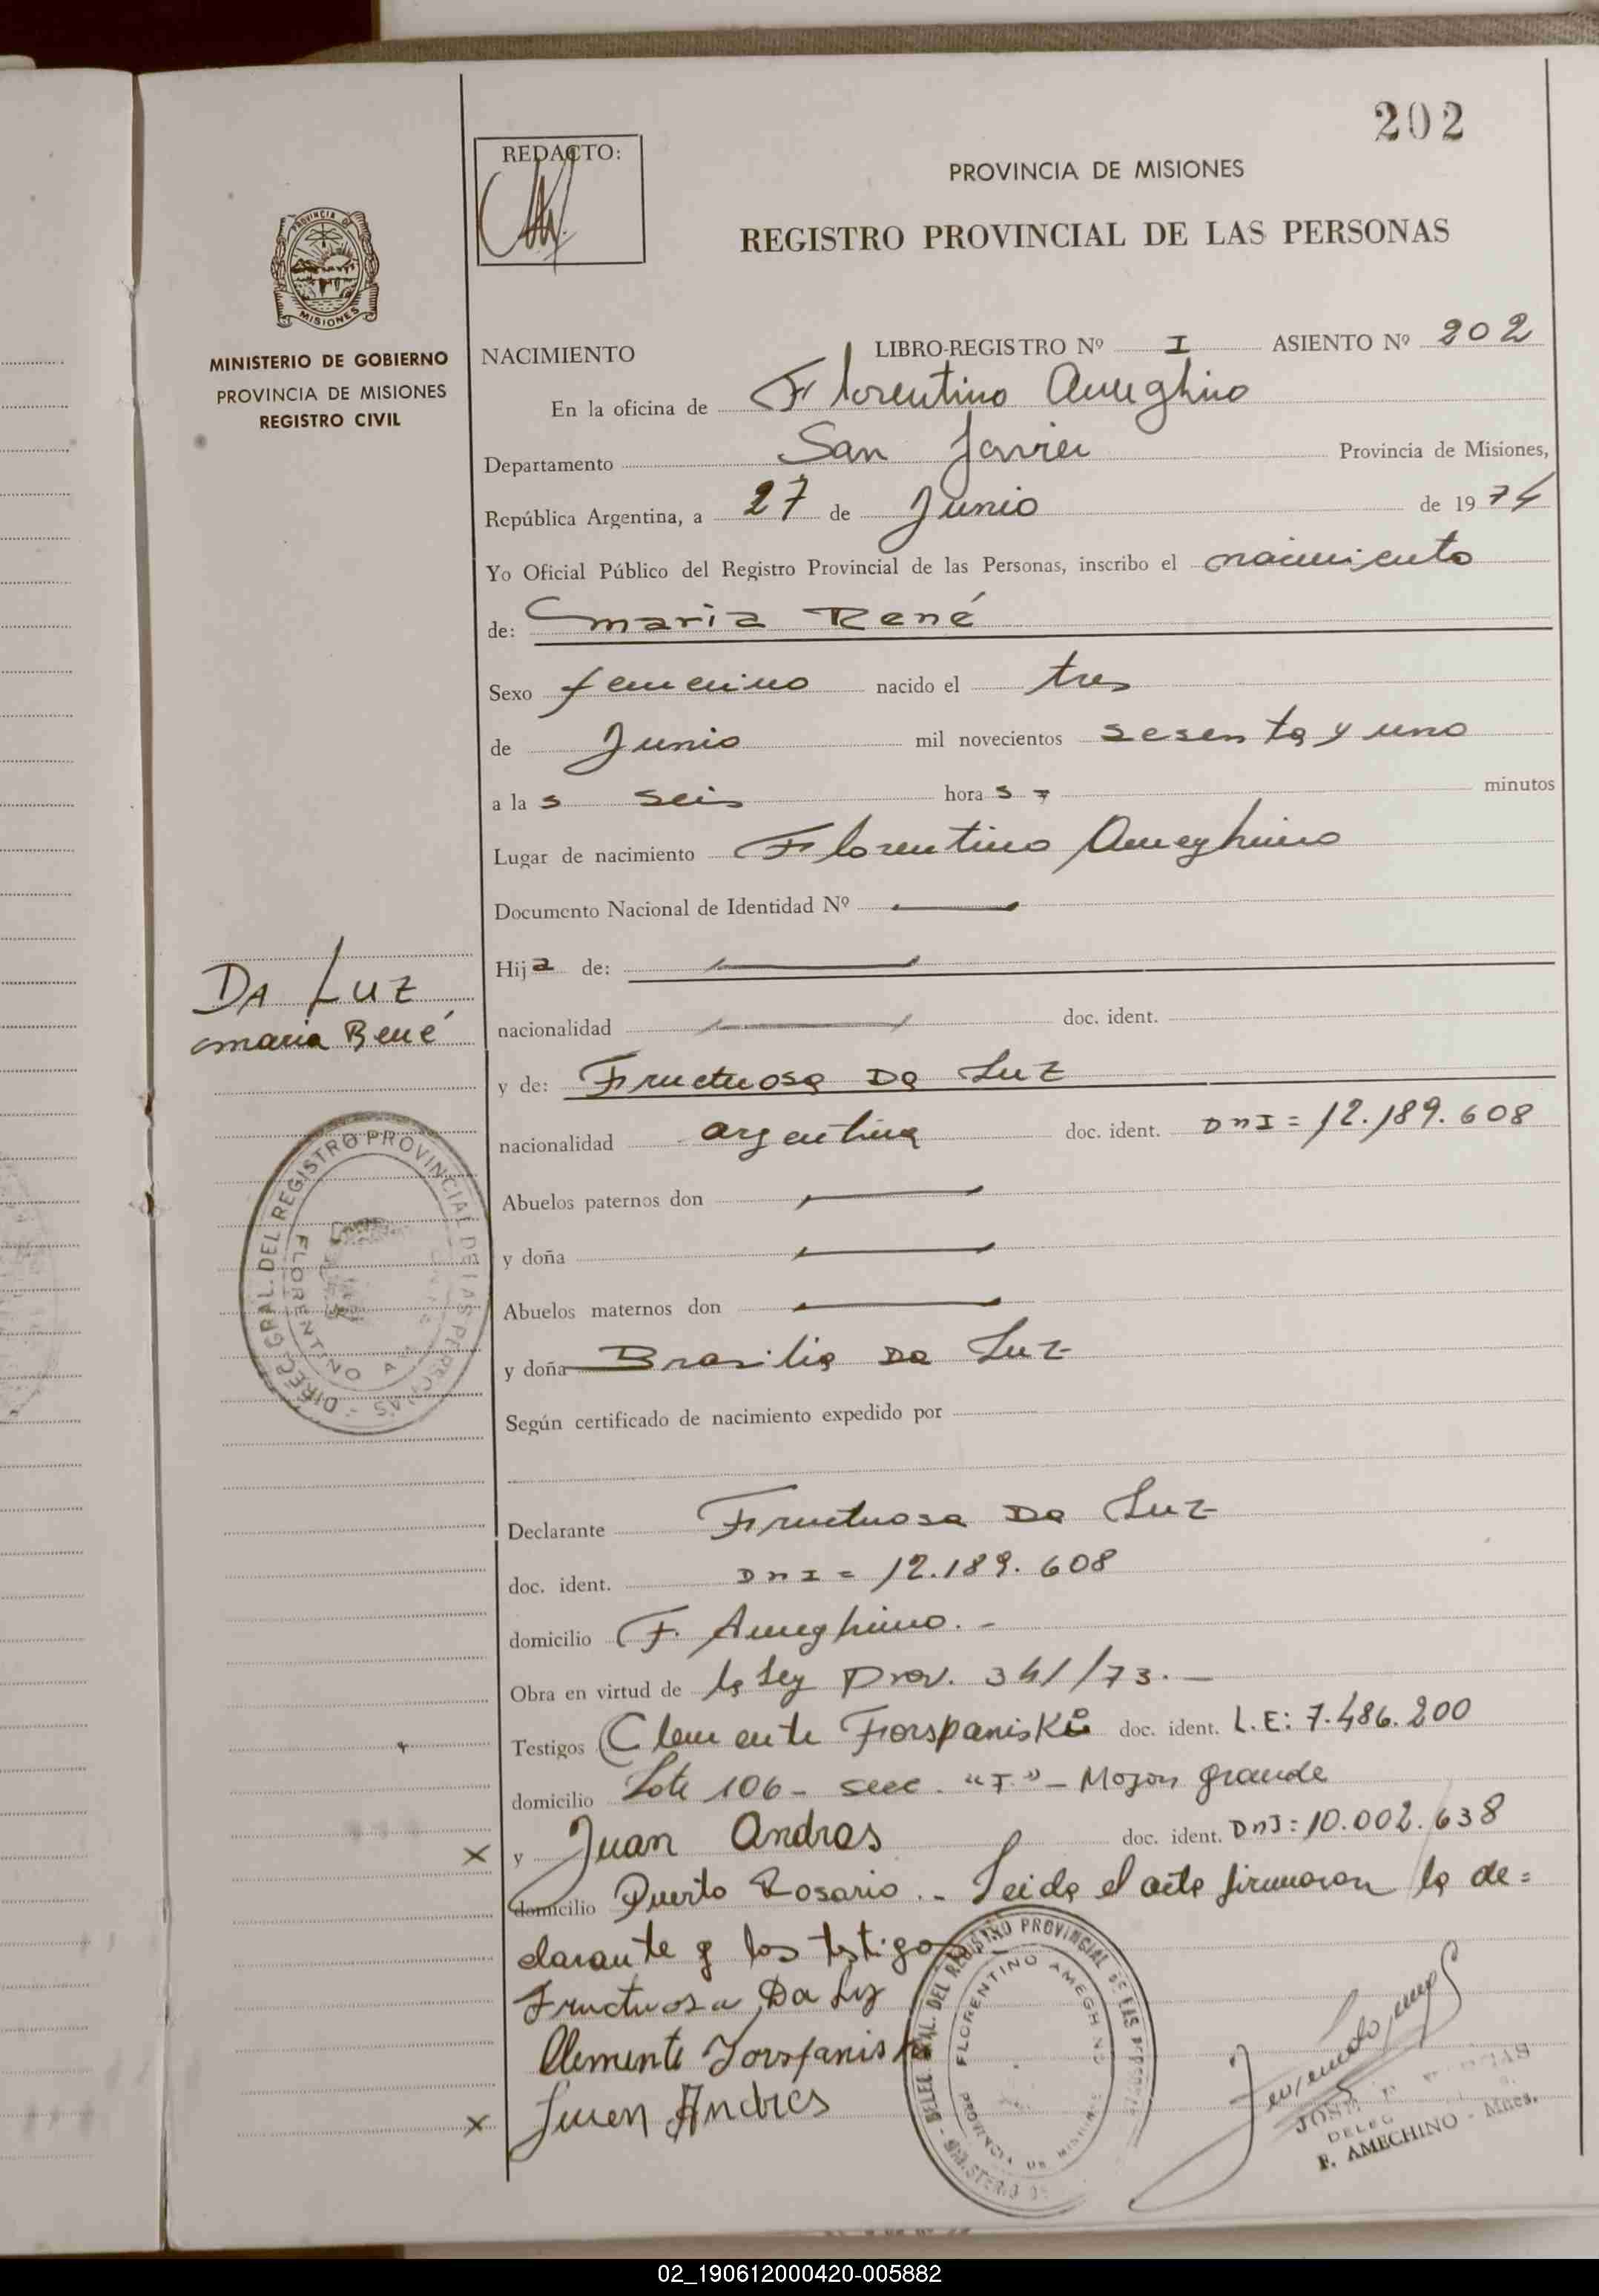 202
REDACTO:
PROVINCIA DE MISIONES
REGISTRO PROVINCIAL DE LAS PERSONAS
PROVINCIA DE
MISIONES
MINISTERIO DE GOBIERNO
PROVINCIA DE MISIONES
REGISTRO CIVIL
NACIMIENTO LIBRO-REGISTRO Nº I ASIENTO Nº 202
En la oficina de Florentino Ameghino
Departamento San Javier Provincia de Misiones,
República Argentina, a 27 de Junio de 1974
Yo Oficial Público del Registro Provincial de las Personas, inscribo el nacimiento
de: maria René
Sexo femenino nacido el tres
de Junio mil novecientos sesenta y uno
a las seis horas minutos
Lugar de nacimiento Florentino Ameghino
Documento Nacional de Identidad Nº
Hija de:
DA LUZ
maria René
nacionalidad doc. ident.
y de: Fructuosa Da Luz
nacionalidad argentina doc. ident. DnI = 12.189.608
Abuelos paternos don
y doña
Abuelos maternos don
y doña Brasilia Da Luz
DIREC. GRAL. DEL REGISTRO PROVINCIAL DE LAS PERSONAS
FLORENTINO
Según certificado de nacimiento expedido por
Declarante Fructuosa Da Luz
doc. ident. DnI = 12.189.608
domicilio F. Ameghino. -
Obra en virtud de la Ley Prov. 341/73. —
Testigos Clemente Forspaniski doc. ident. L.E: 7.486.200
domicilio Lote 106 - secc. "F." - Mojon grande
x y Juan Andres doc. ident. DnI: 10.002.638
domicilio Puerto Rosario. - Leida el acta firmaron la de=
clarante y los testigos
Fructuosa Da Luz
Clemente Forspanis
x Juan Andres
DELEG. GRAL. DEL REGISTRO PROVINCIAL DE LAS PERSONAS
FLORENTINO AMEGHINO
PROVINCIA DE MISIONES
MINISTERIO DE
JOSE
DELEG
F. AMEGHINO - Mnes.
02_190612000420-005882